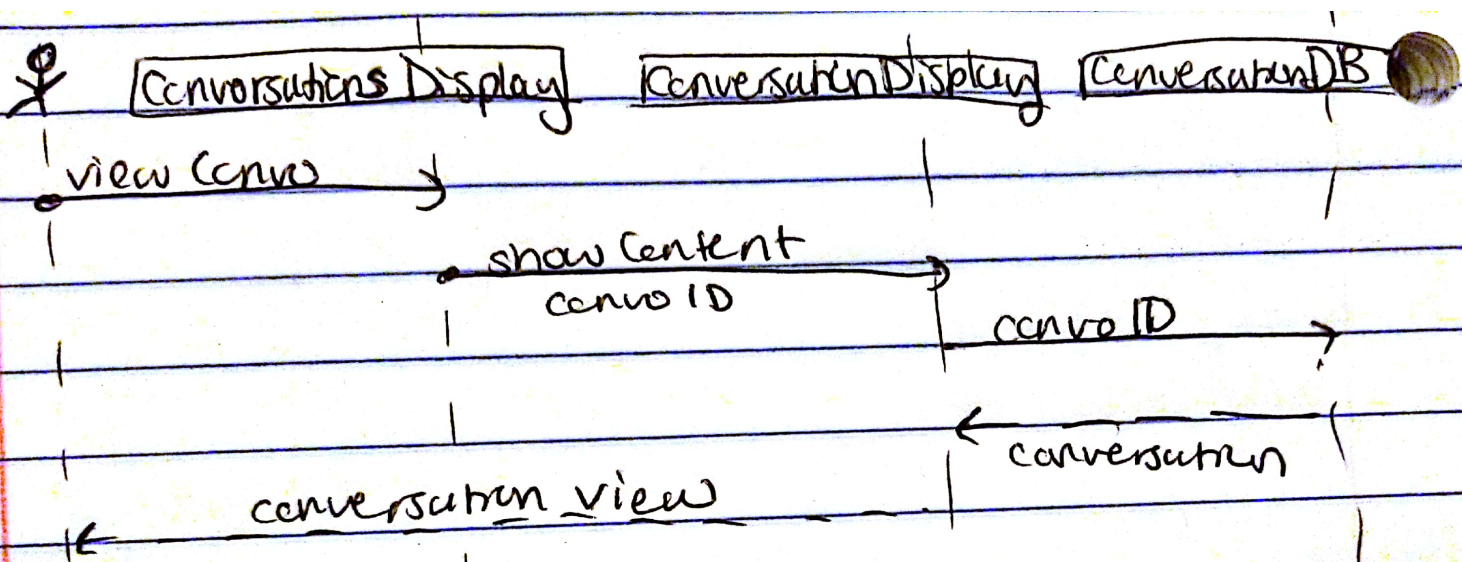 Conversations Display ConversationDisplay ConversationDB
view Convo
show Content
convo ID
convo ID
conversation
conversation view